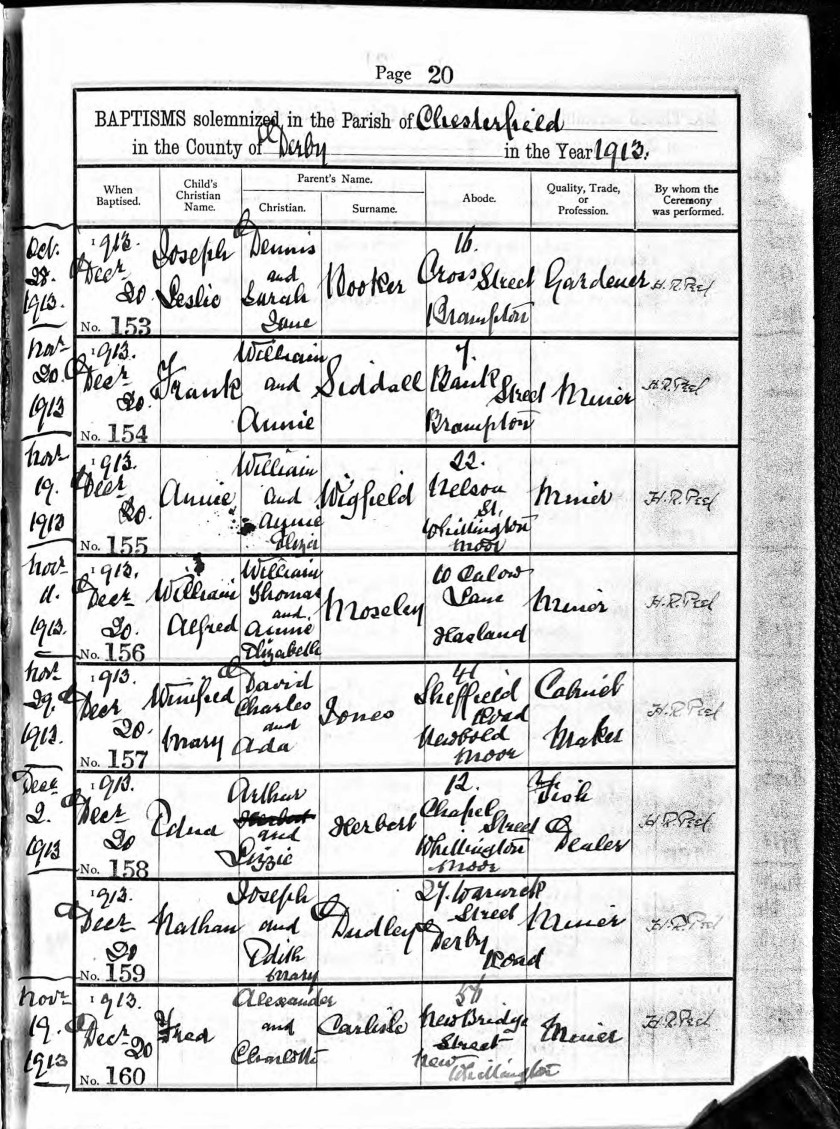 Page 20
BAPTISMS solemnized, in the Parish of Chesterfield
in the County of Derby in the Year 1913.
When Baptised. Child's Christian Name. Parent's Name. Christian. Surname. Abode. Quality, Trade, or Profession. By whom the Ceremony was performed.
Oct. 28. 1913.
1913. Decr 20.
No. 153
Joseph Leslie
Dennis and Sarah Jane
Booker
16. Cross Street Brampton
Gardener
H.R. Peel
Novr 20. 1913
1913. Decr 20.
No. 154
Frank
William and Annie
Siddall
7. Bank Street Brampton
Miner
H.R. Peel
Novr 19. 1913
1913. Decr 20.
No. 155
Annie
William and Annie Eliza
Wigfield
22. Nelson St. Whittington Moor
Miner
H.R. Peel
Novr 11. 1913.
1913. Decr 20.
No. 156
William Alfred
William Thomas and Annie Elizabeth
Moseley
10 Calow Lane Hasland
Miner
H.R. Peel
Novr 29. 1913.
1913. Decr 20.
No. 157
Winifred Mary
David Charles and Ada
Jones
41 Sheffield Road Newbold Moor
Cabinet Maker
H.R. Peel
Decr 2. 1913
1913. Decr 20
No. 158
Edna
Arthur Herbert and Lizzie
Herbert
12. Chapel Street Whittington Moor
Fish Dealer
H.R. Peel
1913. Decr 20
No. 159
Nathan
Joseph and Edith Mary
Dudley
27. Warwick Street Derby Road
Miner
H.R. Peel
Novr 19. 1913
1913. Decr 20
No. 160
Fred
Alexander and Charlotte
Carlisle
56 New Bridge Street New Whittington
Miner
H.R. Peel